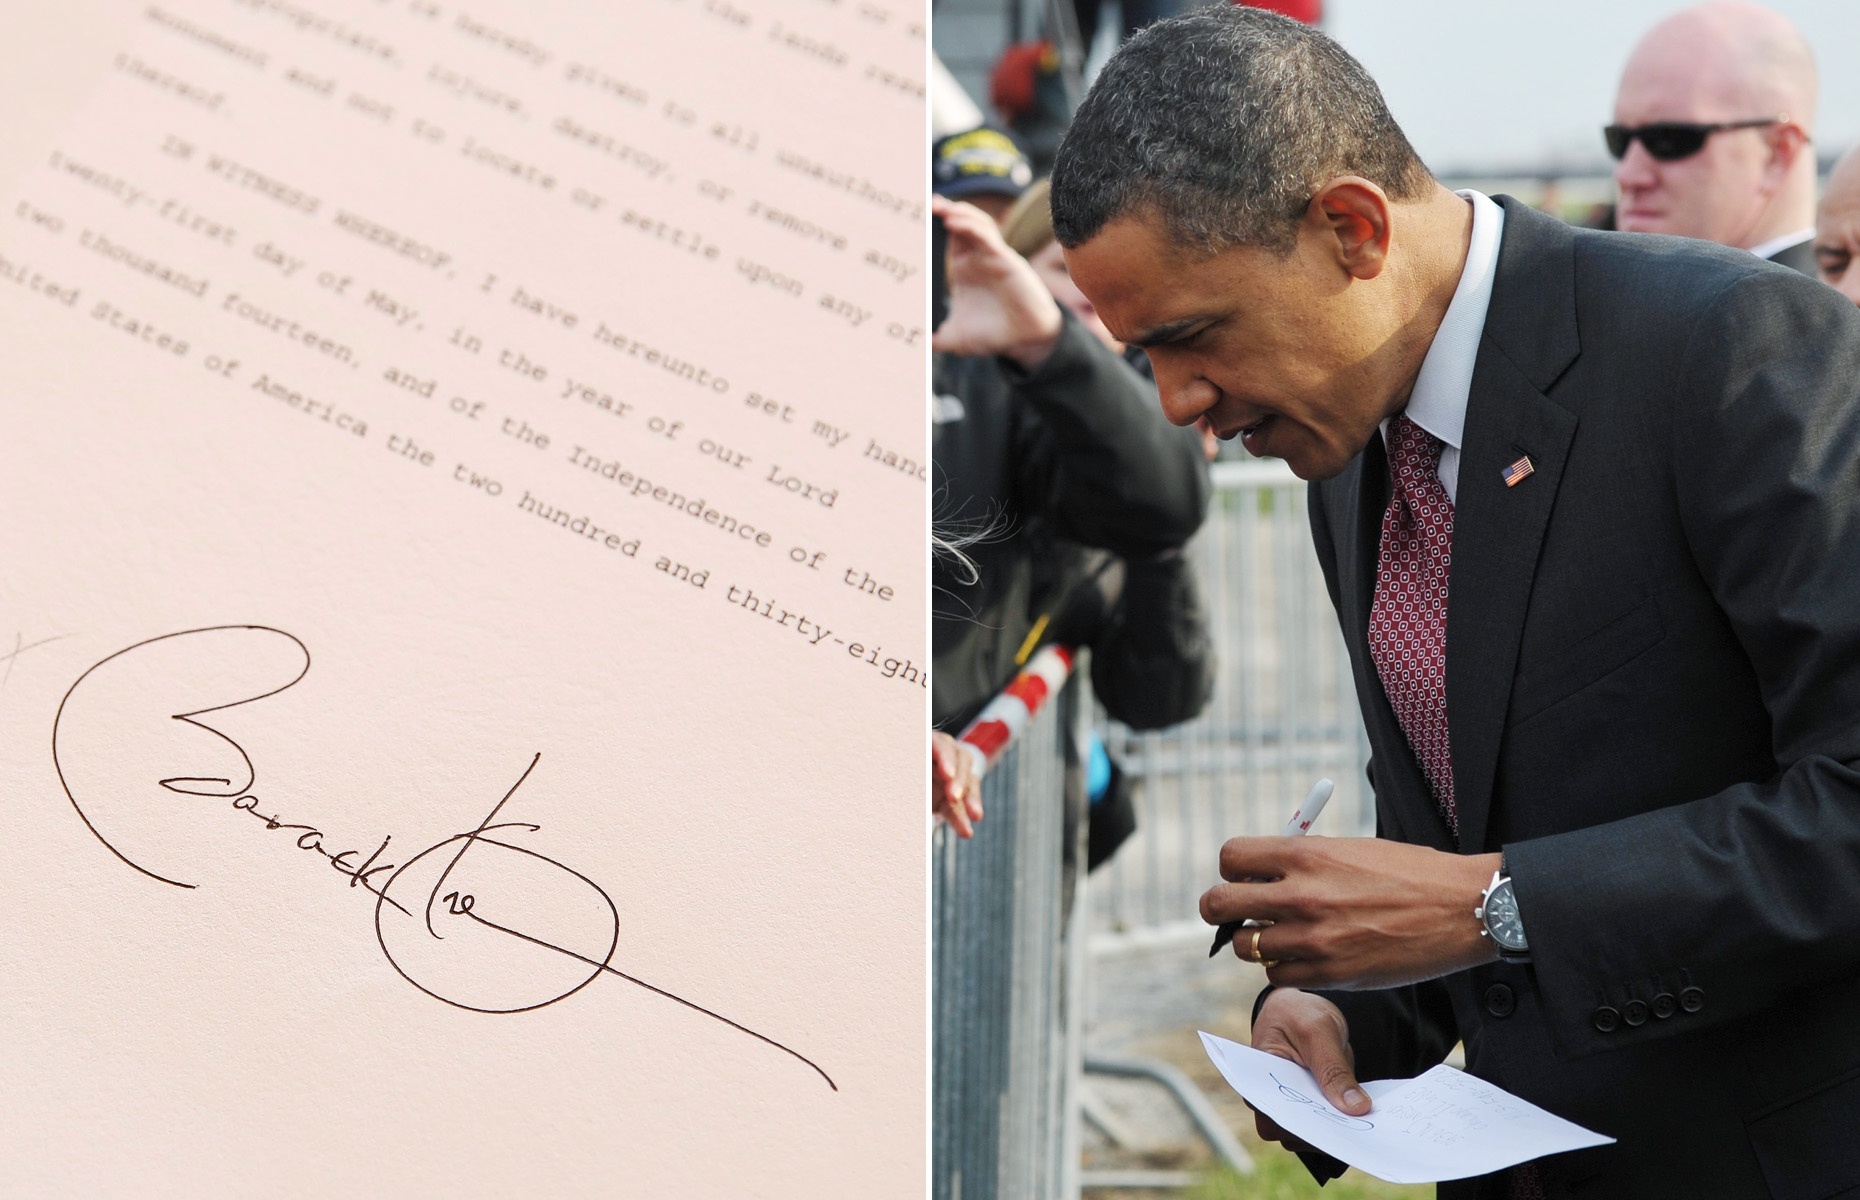 to
the lands rese
is hereby given to all unauthori
appropriate, injure, destroy, or remove any
monument and not to locate or settle upon any of
thereof.
IN WITNESS WHEREOF, I have hereunto set my hand
twenty-first day of May, in the year of our Lord
two thousand fourteen, and of the Independence of the
nited States of America the two hundred and thirty-eight
Barack